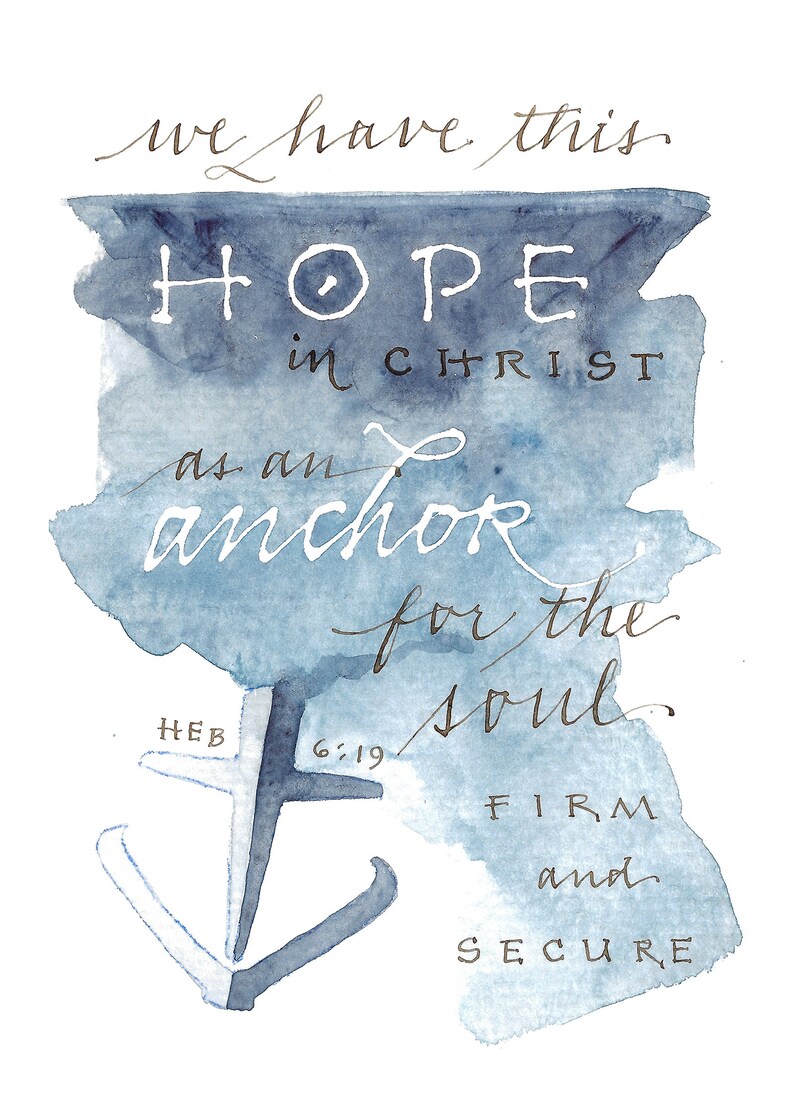 we have this
HOPE
in CHRIST
as an
anchor
for the
soul
HEB 6:19
FIRM
and
SECURE